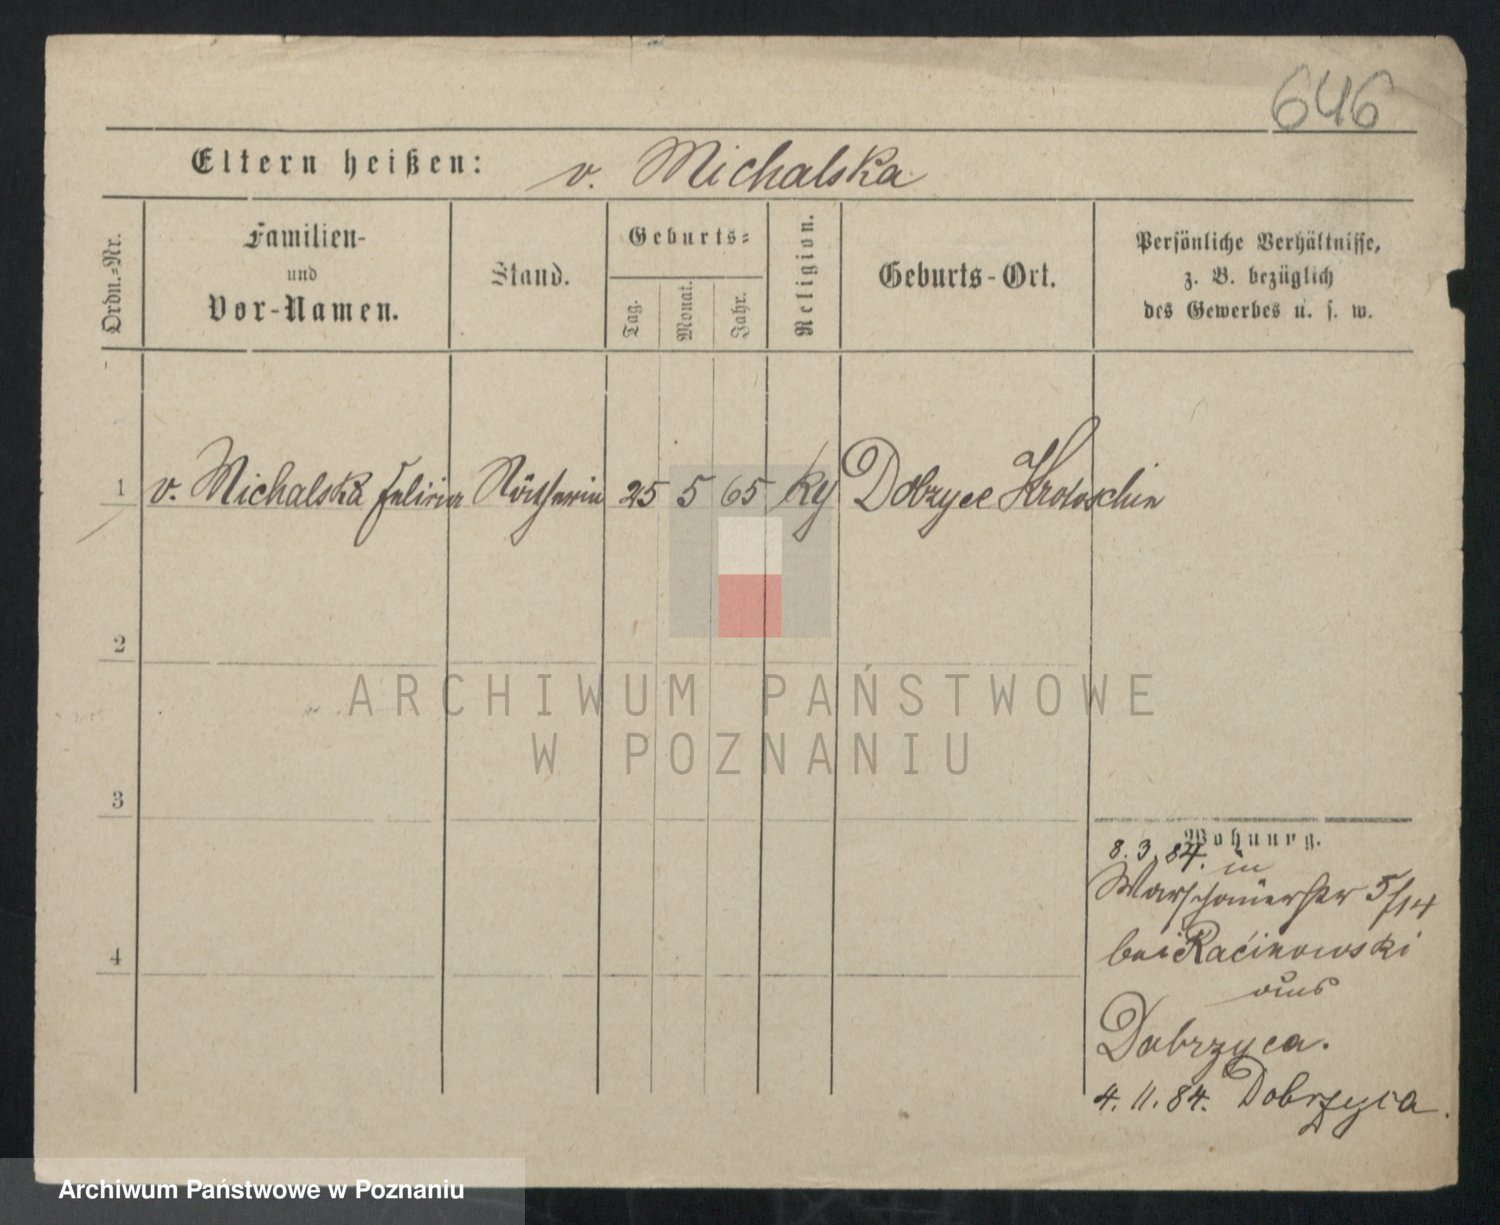 646
Eltern heißen: v. Michalska
Ordn.-Nr.
Familien-
und
Vor-Namen.
Stand.
Geburts-
Tag.
Monat.
Jahr.
Religion.
Geburts-Ort.
Persönliche Verhältnisse,
z. B. bezüglich
des Gewerbes u. s. w.
1 v. Michalska Nätherin 25 5 65 Dobrzyce Krotoschin
2
ARCHIWUM PAŃSTWOWE
W POZNANIU
3
Wohnung.
8. 3. 84. in
Warschauerstr 5/14
bei Raćinowski
aus
Dobrzyca.
4
4. 11. 84. Dobrzyca.
Archiwum Państwowe w Poznaniu